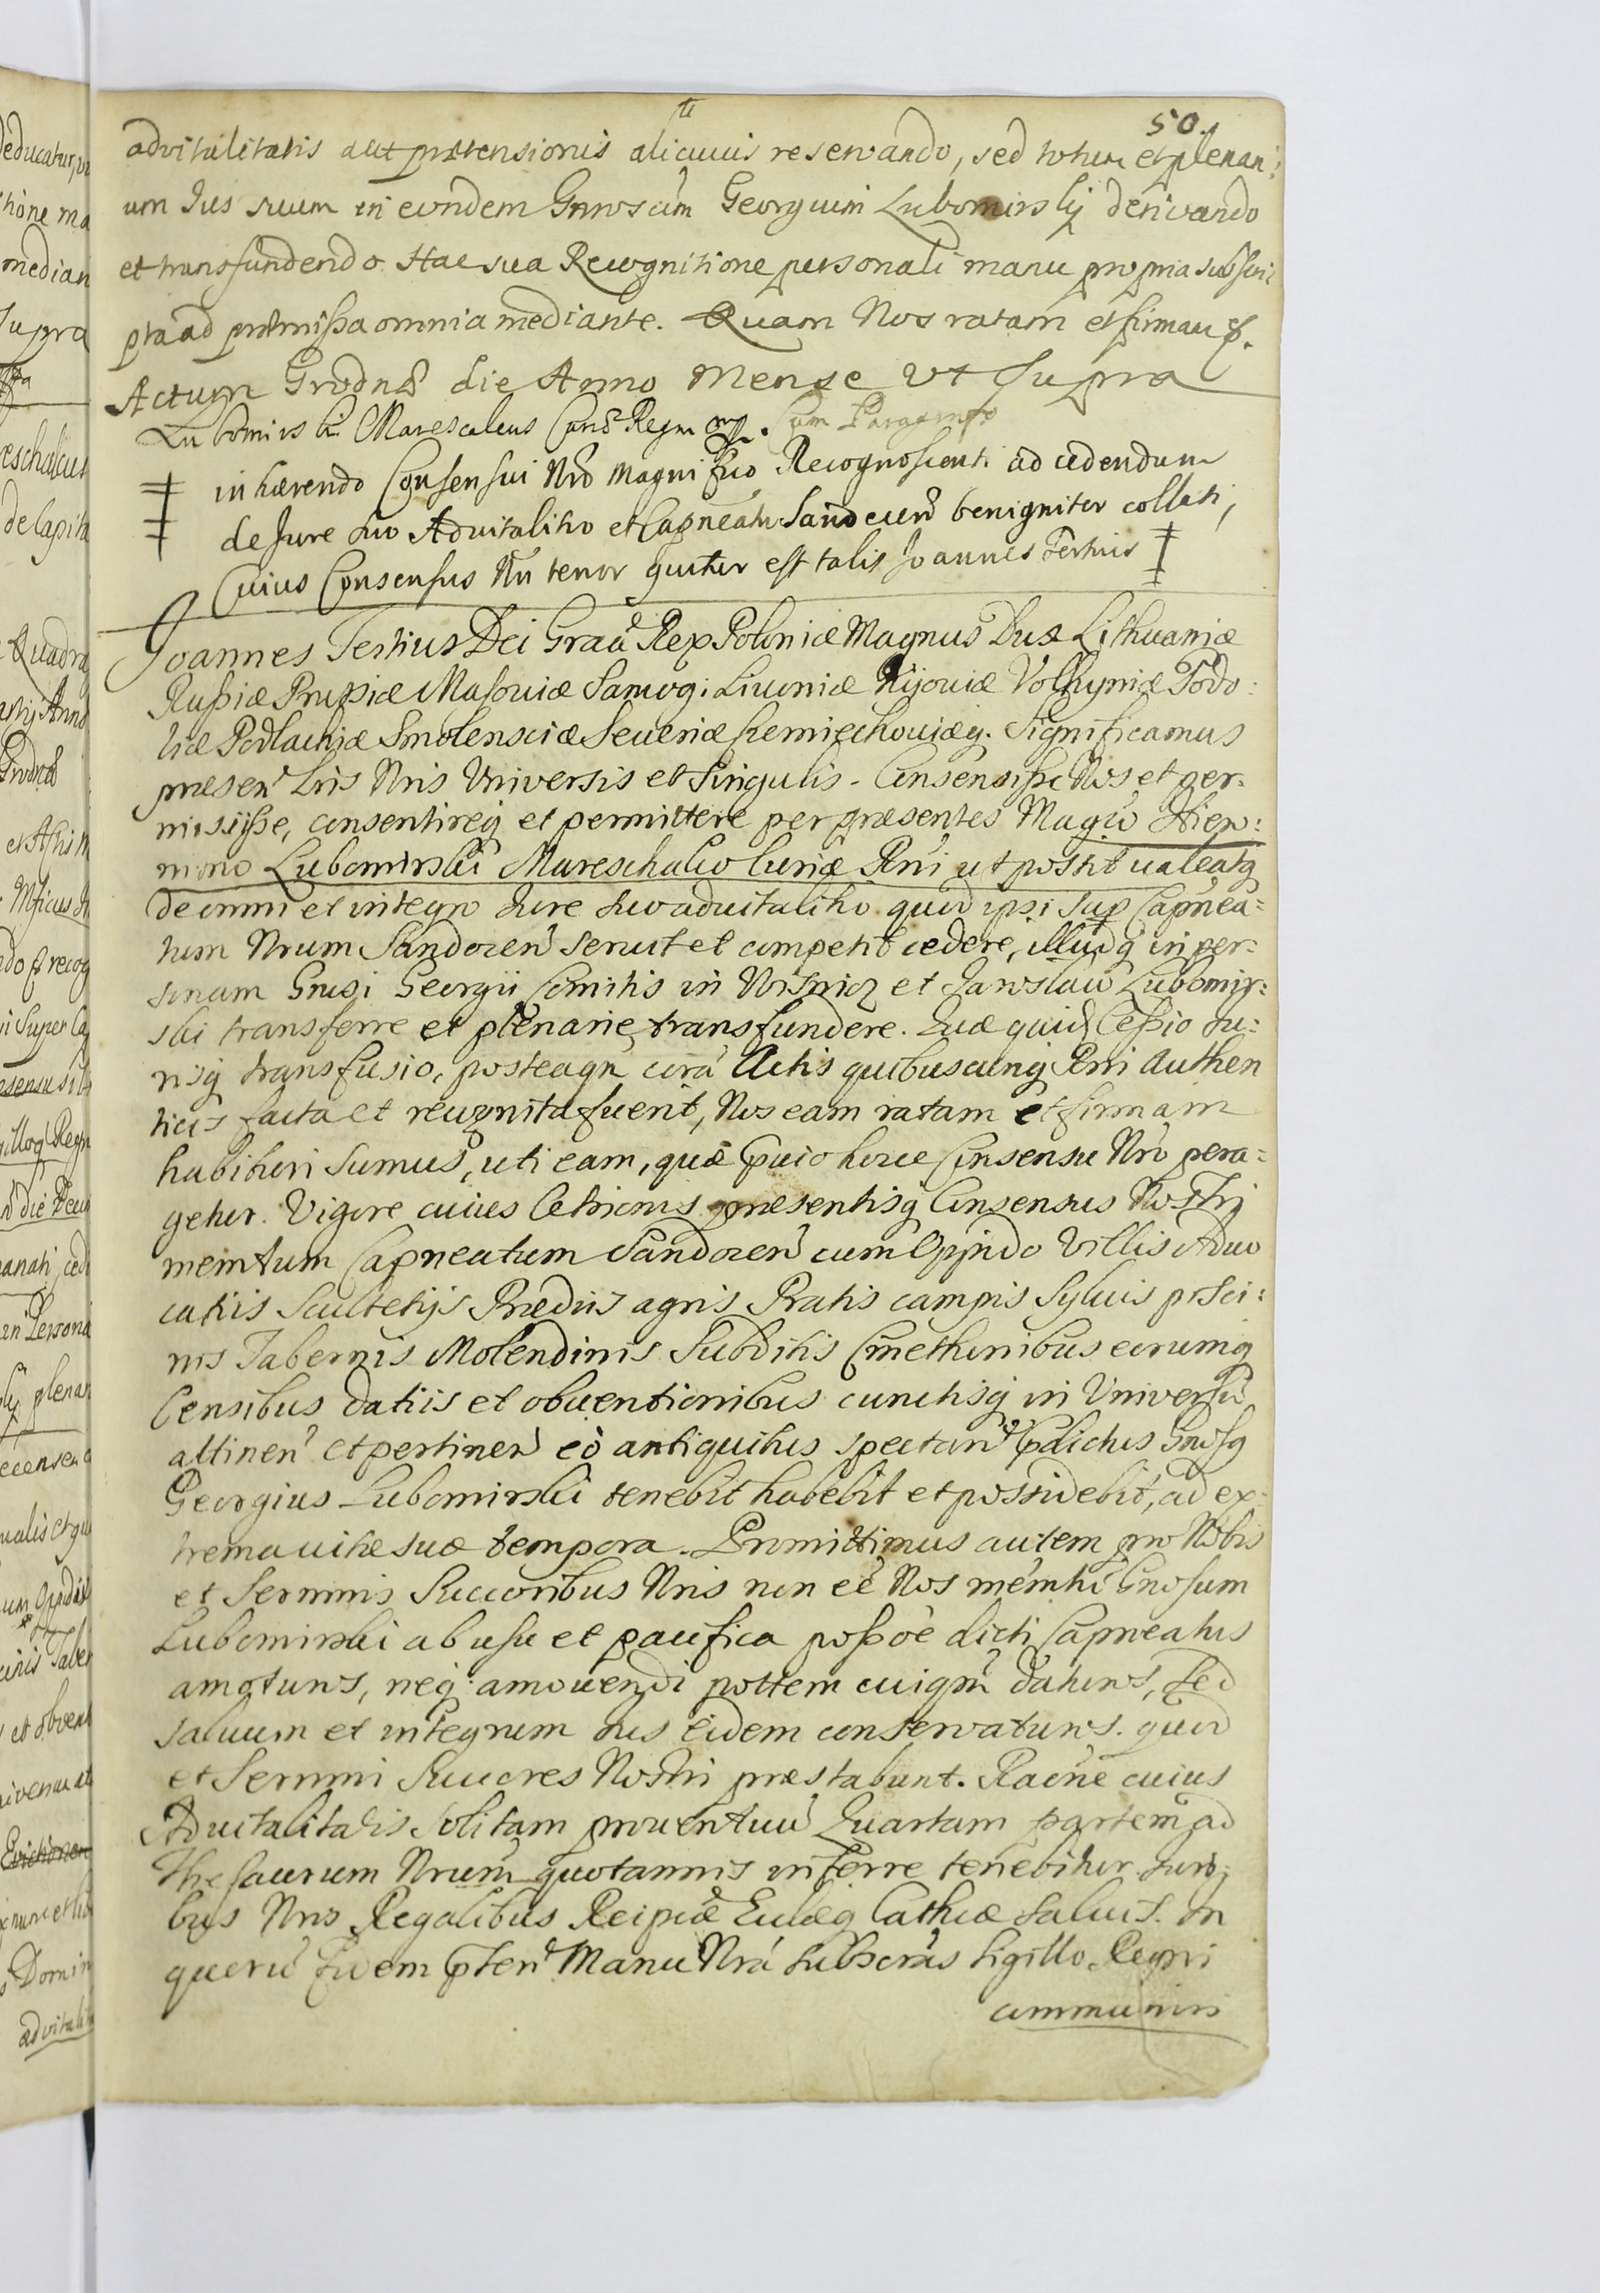 50.
advitalitatis aut prætensionis alicuius reservando, sed totum et plenari:
um Jus suum in eundem Gnrosum Georgium Lubomirsky derivando
et transfundendo. Hac sua Recognitione personali manu propria subscri
pta ad præmissa omnia mediante. Quam Nos ratam et firmam
Actum Grodnæ die Anno Mense Ut Supra
Lubomirski Marescalcus Regni mp. Cum Paragrapho
inhærendo Consensui Nro Magnifico Recognoscenti ad cedendum
de Jure suo Advitalitio et Capneatu Sandecen benigniter collati,
Cuius Consensus Nri tenor quitur est talis Joannes Tertius
Joannes Tertius Dei Graã Rex Poloniæ Magnus Dux Lithuaniæ
Rußiæ Prußiæ Masoviæ Samog: Livoniæ Kijoviæ Volhyniæ Podo:
liæ Podlachiæ Smolensciæ Severiæ Czerniechoviæq. Significamus
præsen Lris Nris Universis et Singulis. Consensiße Nos et per:
misiiße, consentireq et permittere per præsentes Magco Hiero:
nimo Lubomirski Mareschalco Curiæ Rni ut possit valeatq
de omni et integro Jure suo advitalitio quod ipsi sup Capnea:
tum Nrum Sandocen servit et competit cedere, illudq in per:
sonam Gnrsi Georgii Comitis in Wisnicz et Jaroslaw Lubomir:
ski transferre et plenarie transfundere. Quæ quid Ceßio Ju:
risq transfusio, posteaqm corã Actis quibuscunq Rni Authen
ticis facta et recognita fuerit, Nos eam ratam et firmam
habituri sumus, uti eam, quæ pvio hocce Consensu Nro pera:
getur. Vigore cuius Ceßionis præsentisq Consensus Nostri
memtum Capneatum Sandocen cum Oppido Villis Advo
catiis Scultetijs Prædiis agris Pratis campis Sylvis pisci:
nis Tabernis Molendinis Subditis Cmethonibus eorumq
Censibus datiis et obventionibus cunctisq in Universũ
attinen et pertinen eò antiquitus spectan pdictus Gnrosq
Georgius Lubomirski tenebit habebit et possidebit, ad ex:
trema vitæ suæ tempora. Promittimus autem pro Nobis
et Sermis Succoribus Nris non eẽ Nos memtũ Gnrosum
Lubomirski ab usu et pacifica poßoẽ dicti Capneatus
amoturos, neq: amovendi pottem cuiqm daturos, sed
salvum et integrum Jus eidem conservaturos. quod
et Sermi Succores Nostri præstabunt. Raõne cuius
Advitalitatis solitam proventuũ Quartam partem ad
Thesaurum Nrum quotannis inferre tenebitur. Juri:
bus Nris Regalibus Reipcæ Ecclæq Cathcæ salvis. In
quorũ fidem pten Manu Nrã subscras sigillo Regni
communiri